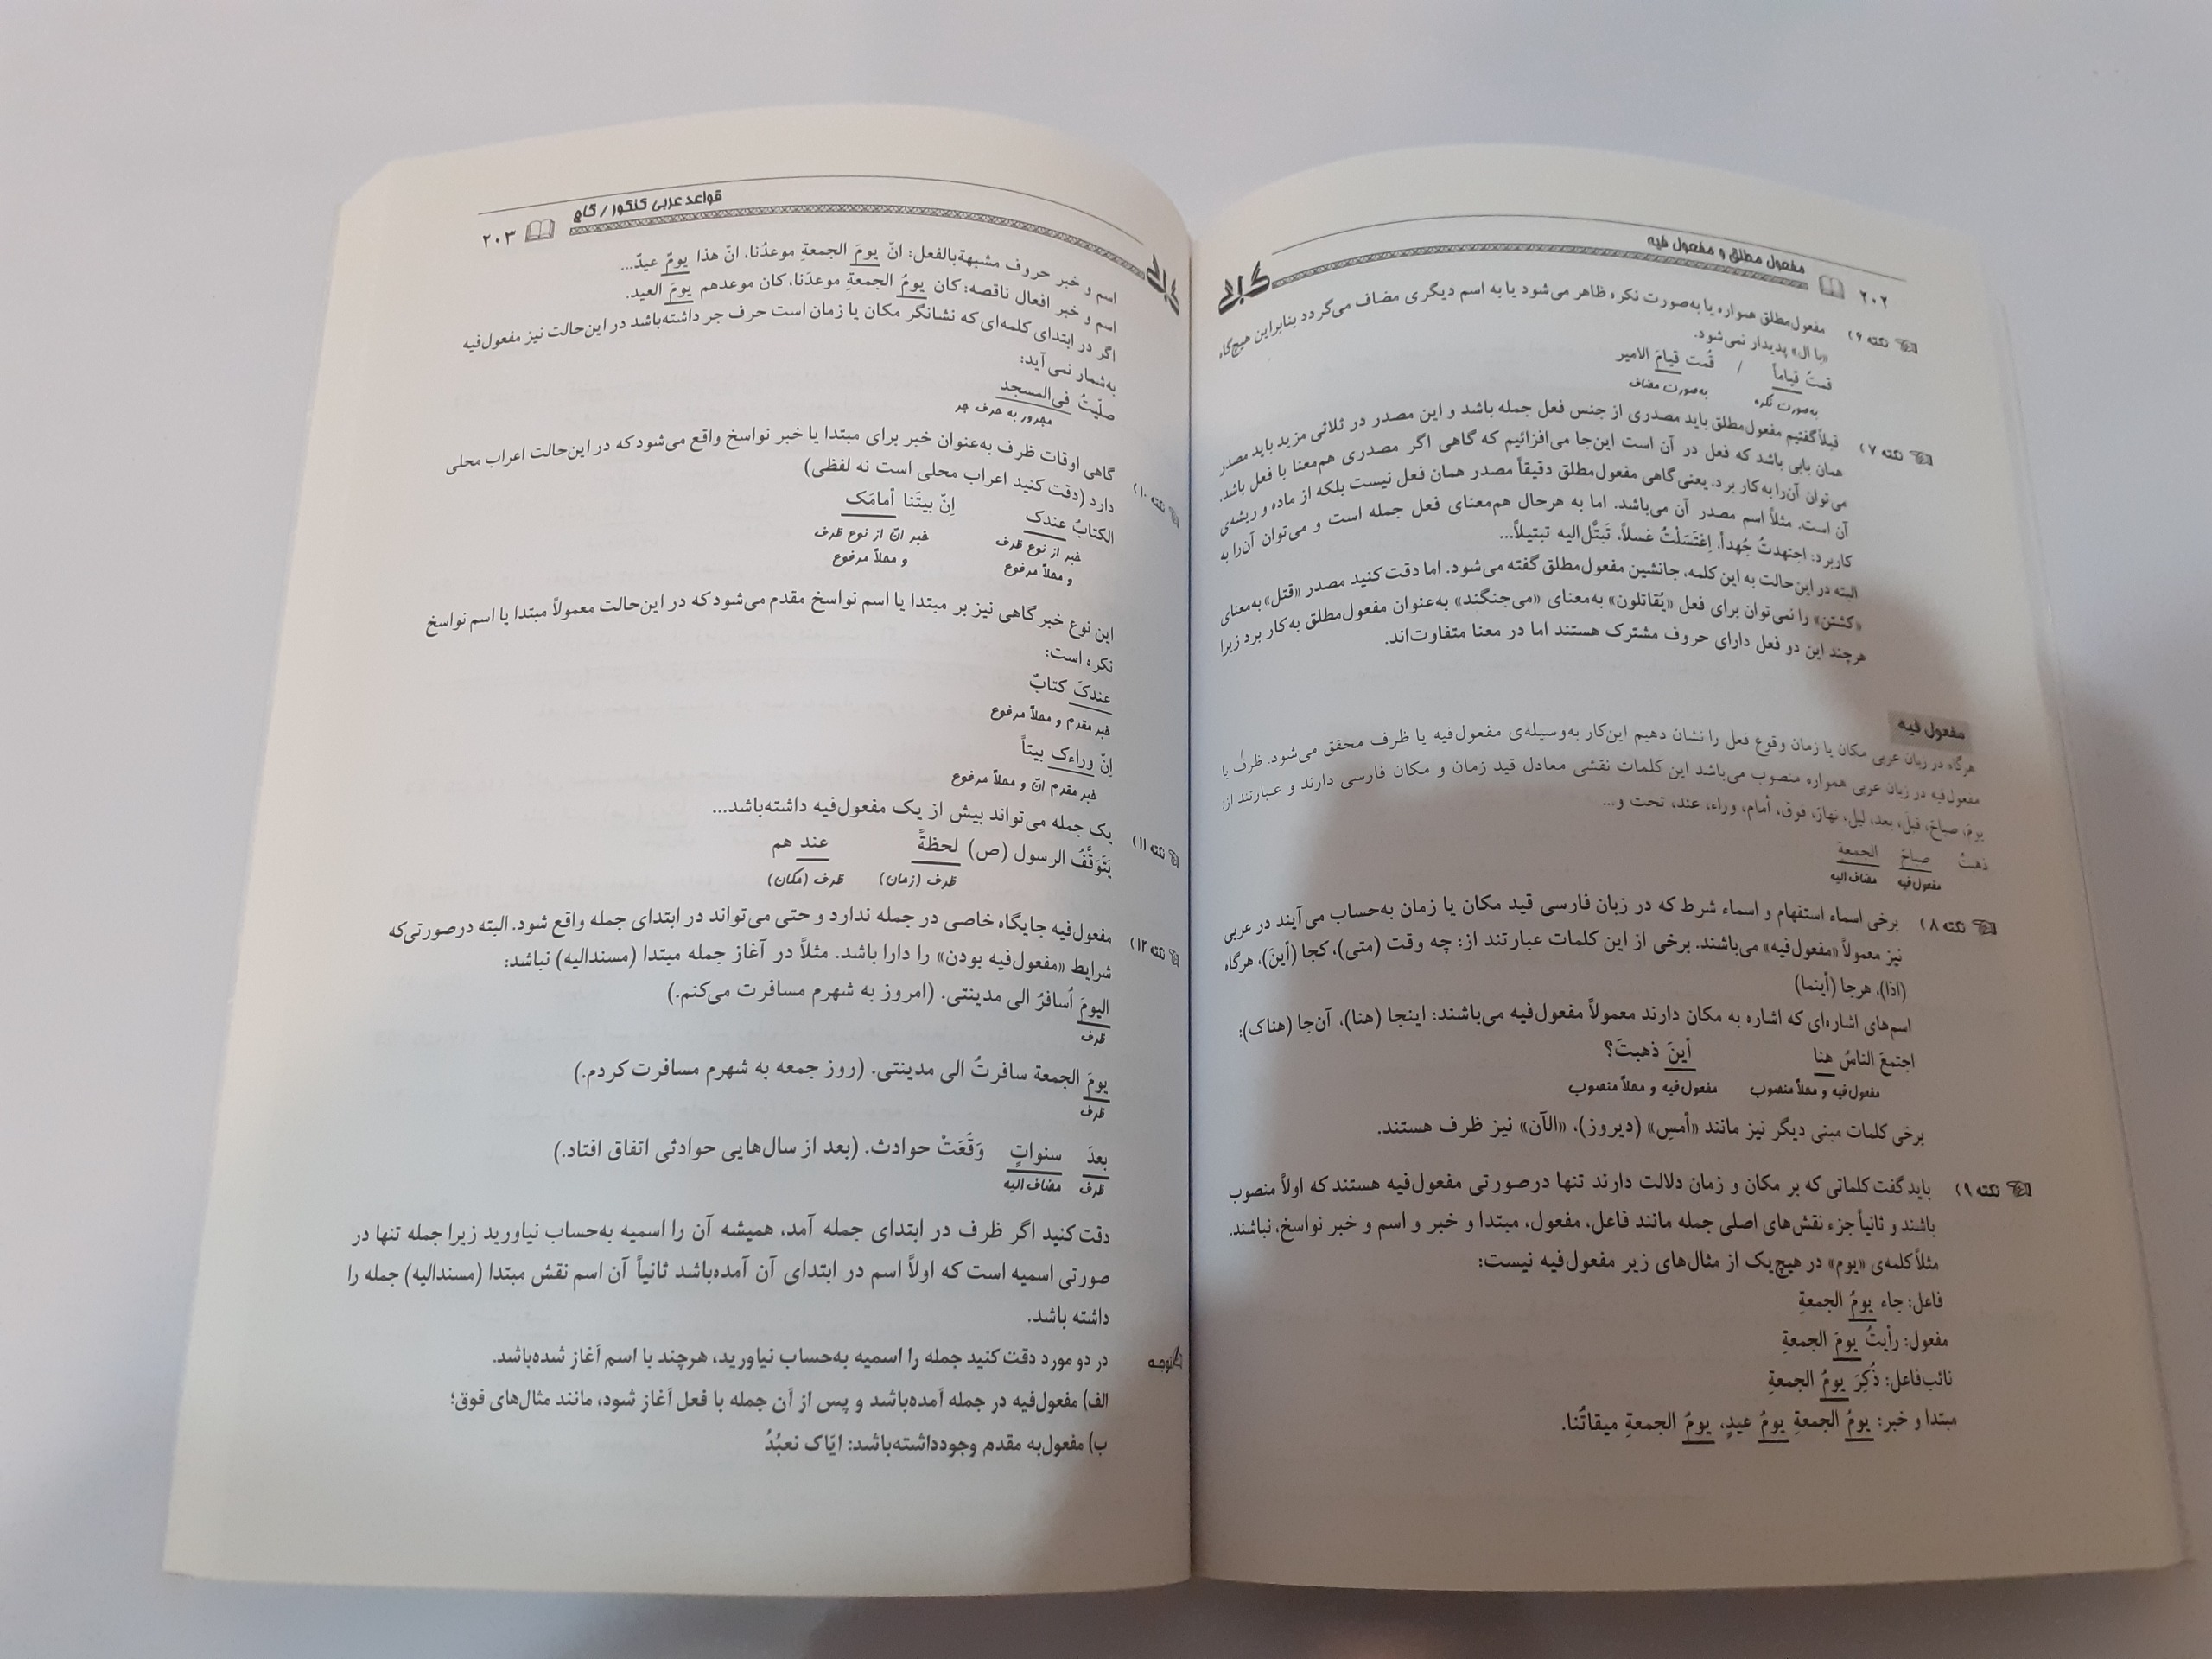 ۲۰۲ مفعول مطلق و مفعول فیه
گاج
نکته ۶) مفعول‌مطلق همواره یا به‌صورت نکره ظاهر می‌شود یا به اسم دیگری مضاف می‌گردد بنابراین هیچ‌گاه
«با ال» پدیدار نمی‌شود.
قمتُ قیاماً / قُمت قیامَ الامیر
به‌صورت نکره به‌صورت مضاف
نکته ۷) قبلاً گفتیم مفعول‌مطلق باید مصدری از جنس فعل جمله باشد و این مصدر در ثلاثی مزید باید مصدر
همان بابی باشد که فعل در آن است این‌جا می‌افزائیم که گاهی اگر مصدری هم‌معنا با فعل باشد،
می‌توان آن‌را به‌کار برد. یعنی گاهی مفعول‌مطلق دقیقاً مصدر همان فعل نیست بلکه از ماده و ریشه‌ی
آن است. مثلاً اسم مصدر آن می‌باشد. اما به هرحال هم‌معنای فعل جمله است و می‌توان آن‌را به
کاربرد: اجتهدتُ جُهداً. اِغتَسَلْتُ غسلاً، تَبتَّل‌الیه تبتیلاً...
البته در این‌حالت به این کلمه، جانشین مفعول‌مطلق گفته می‌شود. اما دقت کنید مصدر «قتل» به‌معنای
«کشتن» را نمی‌توان برای فعل «یُقاتلون» به‌معنای «می‌جنگند» به‌عنوان مفعول‌مطلق به‌کار برد زیرا
هرچند این دو فعل دارای حروف مشترک هستند اما در معنا متفاوت‌اند.
مفعول فیه
هرگاه در زبان عربی مکان یا زمان وقوع فعل را نشان دهیم این‌کار به‌وسیله‌ی مفعول‌فیه یا ظرف محقق می‌شود. ظرف یا
مفعول‌فیه در زبان عربی همواره منصوب می‌باشد این کلمات نقشی معادل قید زمان و مکان فارسی دارند و عبارتند از:
یومَ، صباحَ، قبلَ، بعد، لیل، نهارَ، فوق، أمام، وراء، عند، تحت و...
ذهبتُ صباحَ الجمعة
مفعول‌فیه مضاف الیه
نکته ۸) برخی اسماء استفهام و اسماء شرط که در زبان فارسی قید مکان یا زمان به‌حساب می‌آیند در عربی
نیز معمولاً «مفعول‌فیه» می‌باشند. برخی از این کلمات عبارتند از: چه وقت (متی)، کجا (أینَ)، هرگاه
(اذا)، هرجا (أینما)
اسم‌های اشاره‌ای که اشاره به مکان دارند معمولاً مفعول‌فیه می‌باشند: اینجا (هنا)، آن‌جا (هناک):
اجتمعَ الناسُ هنا أینَ ذهبتَ؟
مفعول‌فیه و محلاً منصوب مفعول‌فیه و محلاً منصوب
برخی کلمات مبنی دیگر نیز مانند «أمسِ» (دیروز)، «الآن» نیز ظرف هستند.
نکته ۹) باید گفت کلماتی که بر مکان و زمان دلالت دارند تنها درصورتی مفعول‌فیه هستند که اولاً منصوب
باشند و ثانیاً جزء نقش‌های اصلی جمله مانند فاعل، مفعول، مبتدا و خبر و اسم و خبر نواسخ، نباشند.
مثلاً کلمه‌ی «یوم» در هیچ‌یک از مثال‌های زیر مفعول‌فیه نیست:
فاعل: جاء یومُ الجمعةِ
مفعول: رأیتُ یومَ الجمعةِ
نائب‌فاعل: ذُکِرَ یومُ الجمعةِ
مبتدا و خبر: یومُ الجمعةِ یومُ عیدٍ، یومُ الجمعةِ میقاتُنا.
قواعد عربی کنکور / گاج ۲۰۳
گاج
اسم و خبر حروف مشبهةبالفعل: انّ یومَ الجمعةِ موعدُنا، انّ هذا یومٌ عیدٌ...
اسم و خبر افعال ناقصه: کان یومُ الجمعةِ موعدَنا، کان موعدهم یومَ العید.
اگر در ابتدای کلمه‌ای که نشانگر مکان یا زمان است حرف جر داشته‌باشد در این‌حالت نیز مفعول‌فیه
به‌شمار نمی‌آید:
صلّیتُ فی‌المسجد
مجرور به حرف جر
نکته ۱۰) گاهی اوقات ظرف به‌عنوان خبر برای مبتدا یا خبر نواسخ واقع می‌شود که در این‌حالت اعراب محلی
دارد (دقت کنید اعراب محلی است نه لفظی)
الکتابُ عندک اِنّ بیتَنا أمامَک
خبر از نوع ظرف خبر انّ از نوع ظرف
و محلاً مرفوع و محلاً مرفوع
این نوع خبر گاهی نیز بر مبتدا یا اسم نواسخ مقدم می‌شود که در این‌حالت معمولاً مبتدا یا اسم نواسخ
نکره است:
عندکَ کتابٌ
خبر مقدم و محلاً مرفوع
اِنّ وراءک بیتاً
خبر مقدم انّ و محلاً مرفوع
نکته ۱۱) یک جمله می‌تواند بیش از یک مفعول‌فیه داشته‌باشد...
یَتَوَقَّفُ الرسول (ص) لحظةً عند هم
ظرف (زمان) ظرف (مکان)
نکته ۱۲) مفعول‌فیه جایگاه خاصی در جمله ندارد و حتی می‌تواند در ابتدای جمله واقع شود. البته درصورتی‌که
شرایط «مفعول‌فیه بودن» را دارا باشد. مثلاً در آغاز جمله مبتدا (مسندالیه) نباشد:
الیومَ اُسافرُ الی مدینتی. (امروز به شهرم مسافرت می‌کنم.)
ظرف
یومَ الجمعة سافرتُ الی مدینتی. (روز جمعه به شهرم مسافرت کردم.)
ظرف
بعدَ سنواتٍ وَقَعَتْ حوادث. (بعد از سال‌هایی حوادثی اتفاق افتاد.)
ظرف مضاف الیه
دقت کنید اگر ظرف در ابتدای جمله آمد، همیشه آن را اسمیه به‌حساب نیاورید زیرا جمله تنها در
صورتی اسمیه است که اولاً اسم در ابتدای آن آمده‌باشد ثانیاً آن اسم نقش مبتدا (مسندالیه) جمله را
داشته باشد.
توجه در دو مورد دقت کنید جمله را اسمیه به‌حساب نیاورید، هرچند با اسم آغاز شده‌باشد.
الف) مفعول‌فیه در جمله آمده‌باشد و پس از آن جمله با فعل آغاز شود، مانند مثال‌های فوق؛
ب) مفعول‌به مقدم وجودداشته‌باشد: ایّاک نعبُدُ